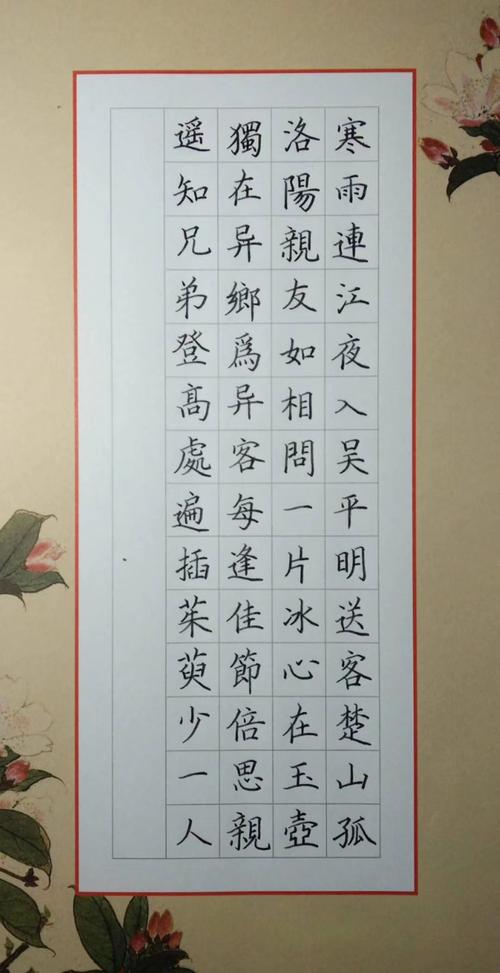 寒雨連江夜入吴平明送客楚山孤
洛陽親友如相問一片冰心在玉壺
獨在异鄉爲异客每逢佳節倍思親
遥知兄弟登高處遍插茱萸少一人